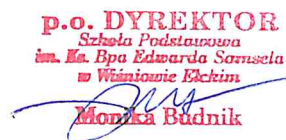 p.o. DYREKTOR
Szkoła Podstawowa
im. Ks. Bpa Edwarda Samsela
w Wiśniowie Ełckim
Monika Budnik